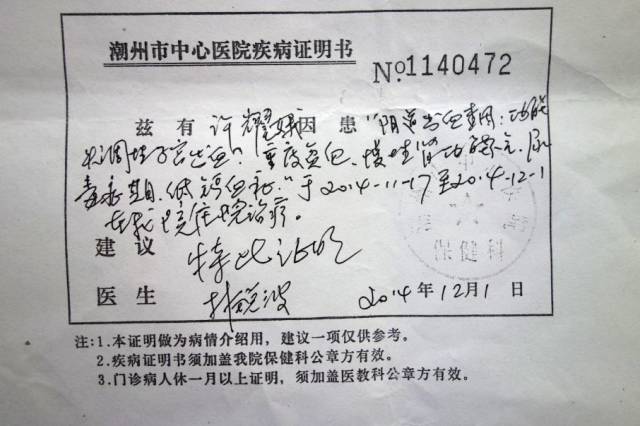 潮州市中心医院疾病证明书
No 1140472
兹 有 许耀娥 因 患 "阴道出血查因：功能
失调性子宫出血？重度贫血、慢性肾功能不全、尿
毒症期、低钙血症"于2014-11-17至2014-12-1
在我院住院治疗。
保健科
建 议 特此证明
医 生
2014 年 12 月 1 日
注:1.本证明做为病情介绍用，建议一项仅供参考。
2.疾病证明书须加盖我院保健科公章方有效。
3.门诊病人休一月以上证明，须加盖医教科公章方有效。